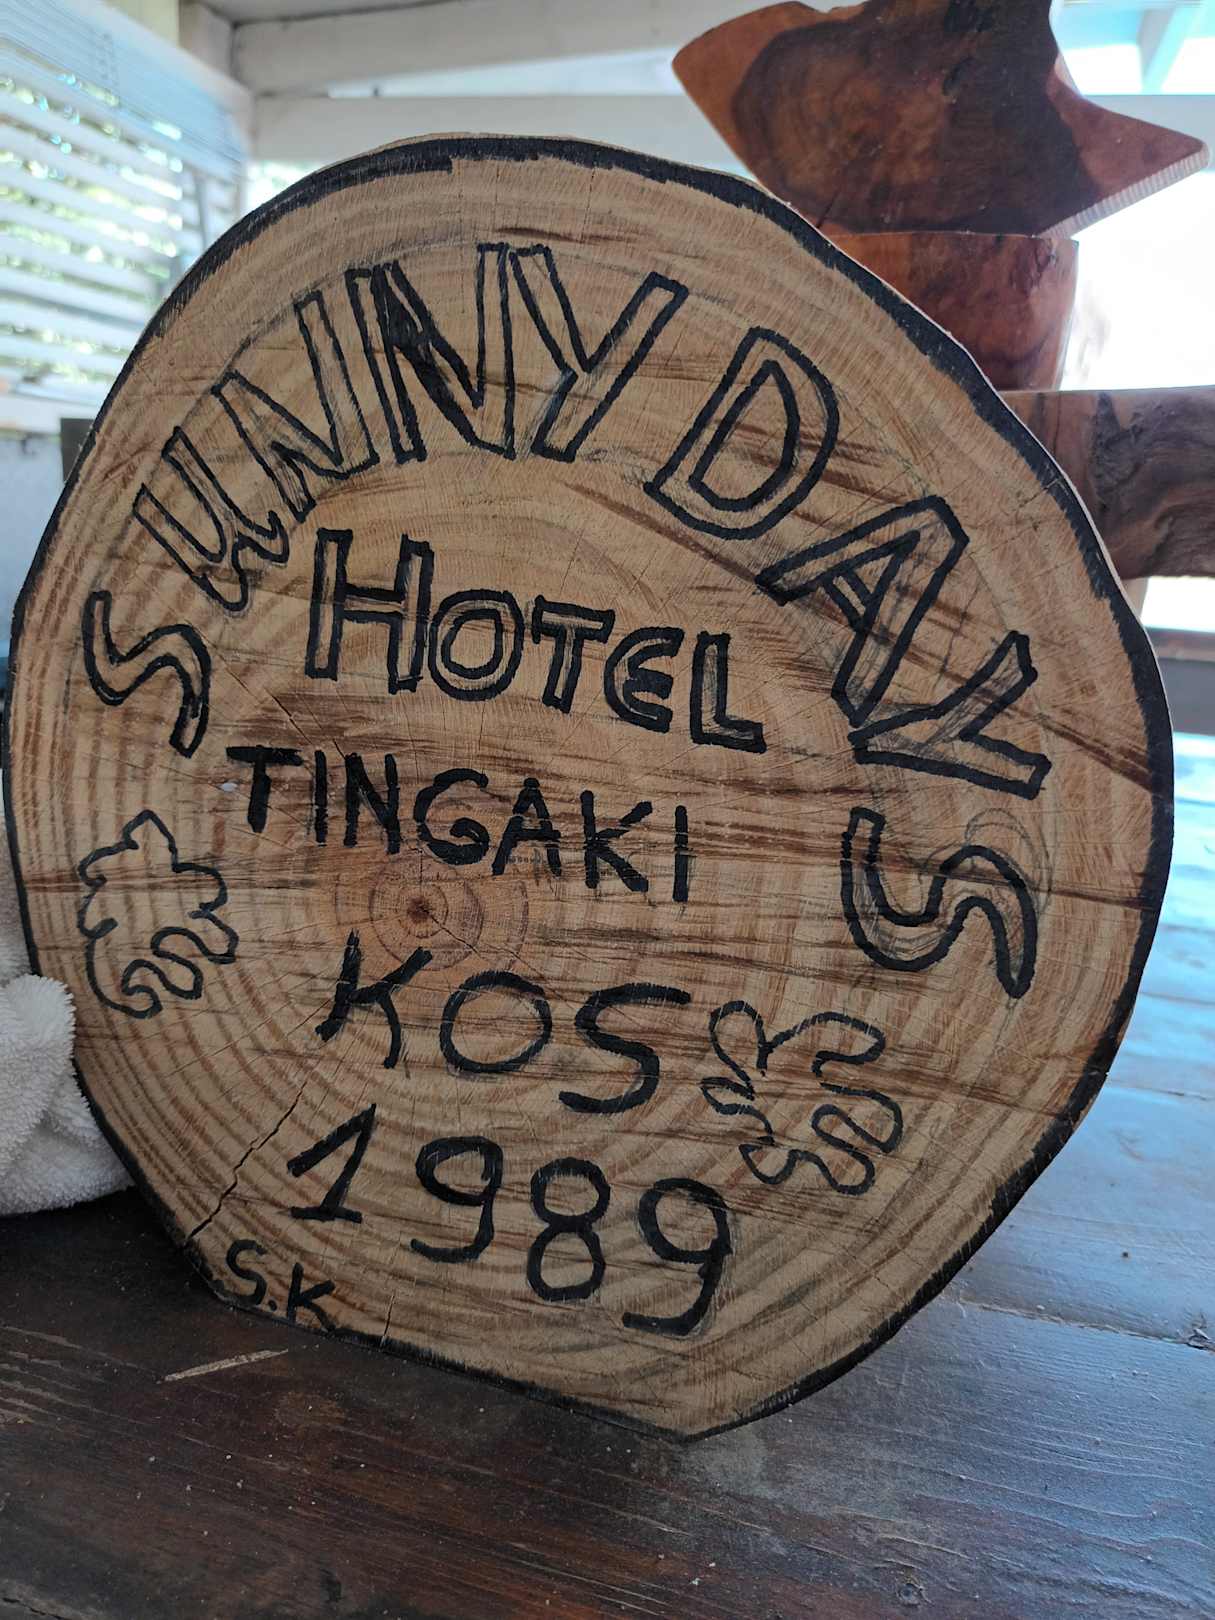 SUNNY DAYS
HOTEL
TINGAKI
KOS
1989
S.K